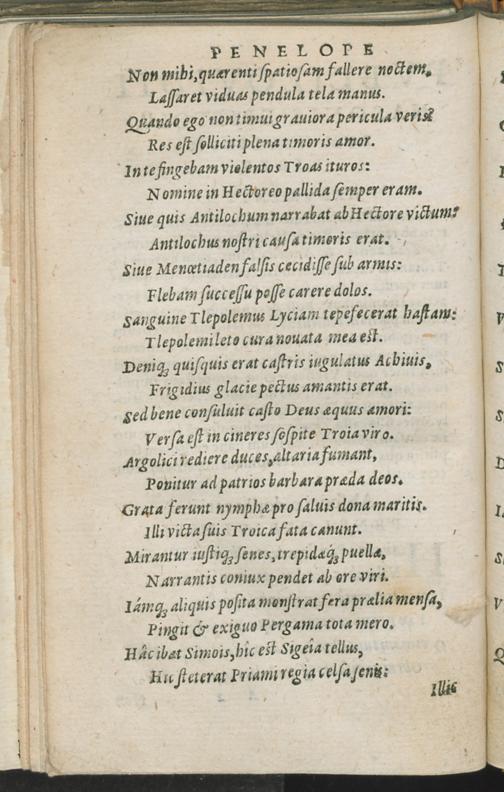 PENELOPE
Non mihi, quærenti spatiosam fallere noctem,
Lassaret viduas pendula tela manus.
Quando ego non timui graviora pericula veris?
Res est solliciti plena timoris amor.
In te fingebam violentos Troas ituros:
Nomine in Hectoreo pallida semper eram.
Siue quis Antilochum narrabat ab Hectore victum:
Antilochus nostri causa timoris erat.
Siue Menœtiaden falsis cecidisse sub armis:
Flebam successu posse carere dolos.
Sanguine Tlepolemus Lyciam tepefecerat hastam:
Tlepolemi leto cura novata mea est.
Deniq; quisquis erat castris iugulatus Achivis,
Frigidius glacie pectus amantis erat.
Sed bene consuluit casto Deus æquus amori:
Versa est in cineres sospite Troia viro.
Argolici rediere duces, altaria fumant,
Ponitur ad patrios barbara præda deos.
Grata ferunt nymphæ pro salvis dona maritis.
Illi victa suis Troica fata canunt.
Mirantur iustiq; senes, trepidæq́; puellæ,
Narrantis coniux pendet ab ore viri.
Iámq; aliquis posita monstrat fera prælia mensa,
Pingit & exiguo Pergama tota mero.
Hâc ibat Simois, hic est Sigeîa tellus,
Hic steterat Priami regia celsa senis:
Illic